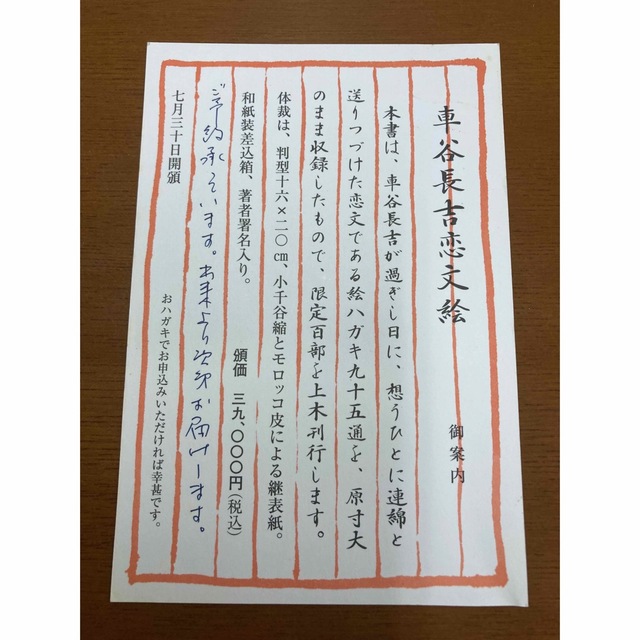 車谷長吉恋文絵
御案内
本書は、車谷長吉が過ぎし日に、想うひとに連綿と
送りつづけた恋文である絵ハガキ九十五通を、原寸大
のまま収録したもので、限定百部を上木刊行します。
体裁は、判型十六×二〇㎝、小千谷縮とモロッコ皮による継表紙。
和紙装差込箱、著者署名入り。
頒価 三九、〇〇〇円(税込)
ご予約承ています。出来より次第お届けします。
七月三十日開頒
おハガキでお申込みいただければ幸甚です。